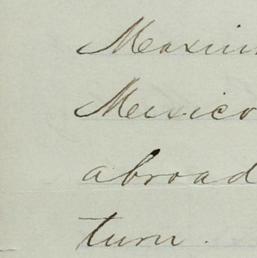 Maxim
Mexico
abroad
turn.